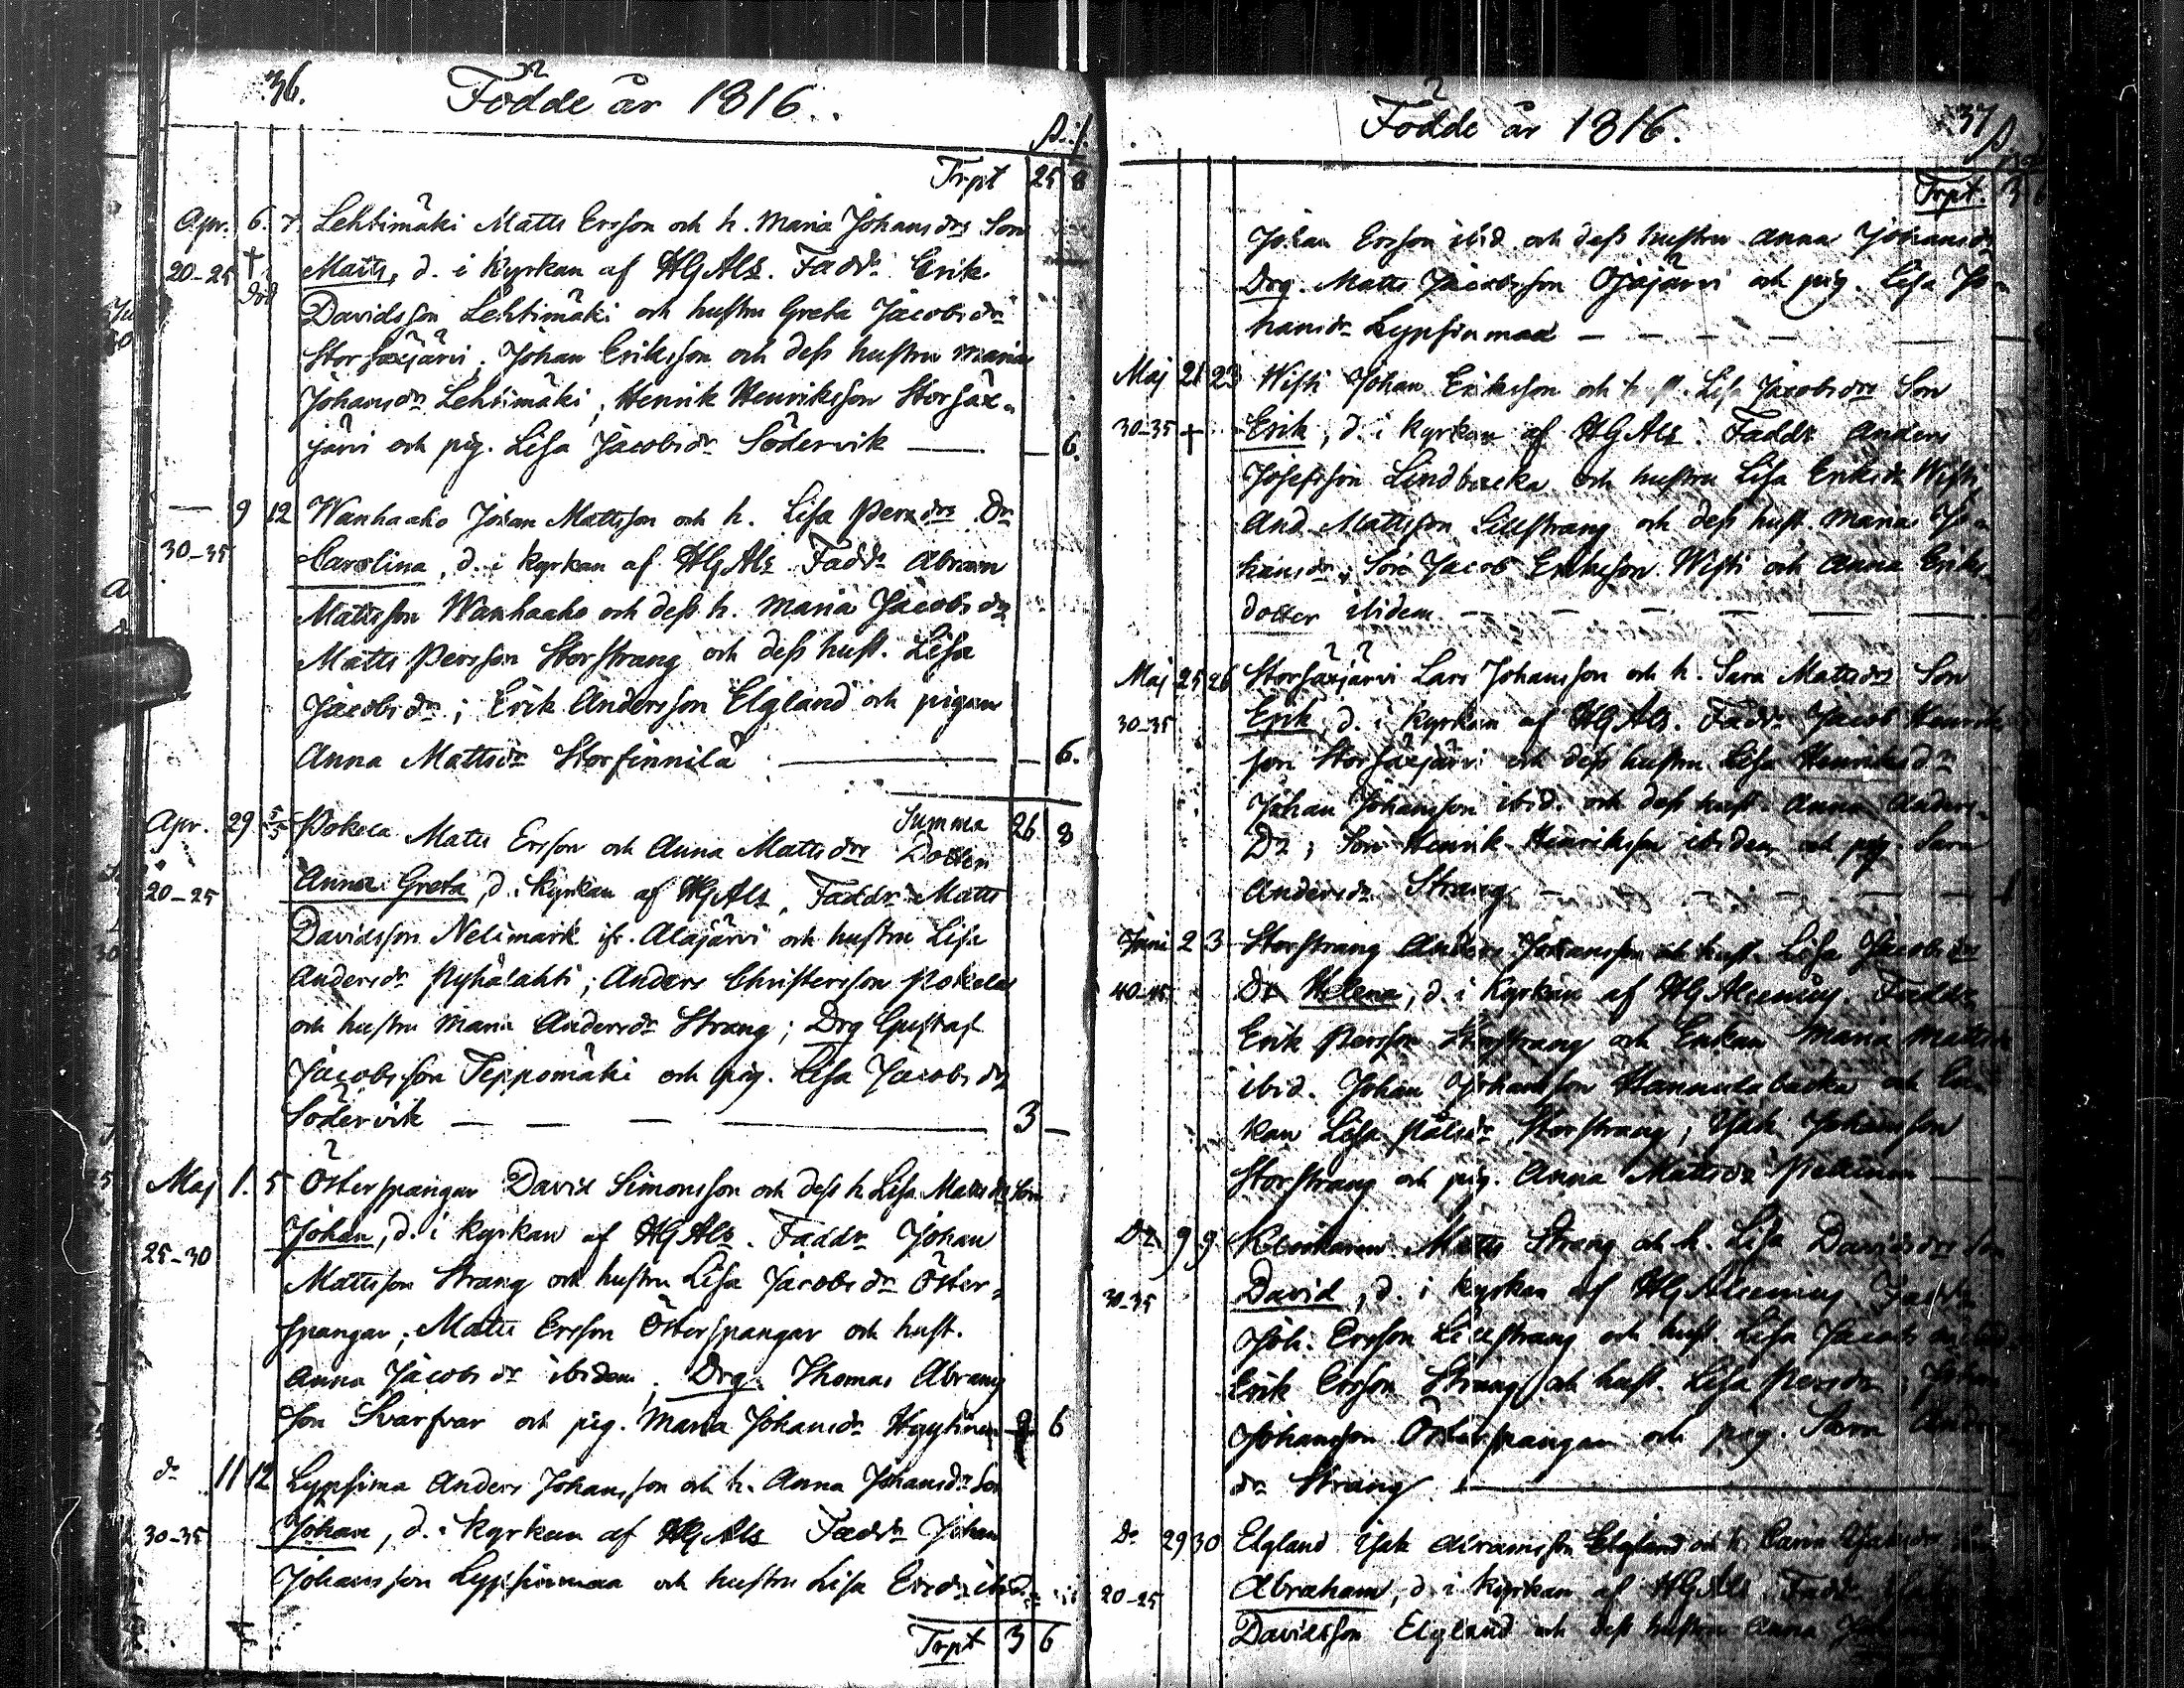 36.
Födde år 1816.
Trpt 25 8
Apr. 6. 7. Lehtimäki Matts Ersson och h. Maria Johansdrs Son
20-25 † död Matts, d. i Kyrkan af HGAls. Faddr Erik
Davidsson Lehtimäki och hustru Greta Jacobsdr
Storsäxjärvi; Johan Eriksson och dess hustru Maria
Johansdr Lehtimäki; Henrik Henriksson Storsäx-
järvi och pig. Lisa Jacobsdr Södervik — — 6.
— 9 12 Wanhaaho Johan Mattsson och h. Lisa Persdrs Dr
30-35 Carolina, d. i Kyrkan af HGAls Faddr Abram
Mattsson Wanhaaho och dess h. Maria Jacobsdr
Matts Persson Storstrang och dess hust. Lisa
Jacobsdr; Erik Andersson Elgland och pigan
Anna Mattsdr Storfinnilä — — 6.
Summa 26 8
Apr. 29 5/5 Pokela Matts Ersson och Anna Mattsdrs Dotter
20-25 Anna Greta, d. i Kyrkan af HGAls, Faddr Matts
Davidsson Nelimark ifr. Alajärvi och hustru Lisa
Andersdr Pyhälahti; Anders Christersson Pokela
och hustru Maria Andersdr Strang; Drg Gustaf
Jacobsson Teppomäki och pig. Lisa Jacobsdr
Södervik — — — — 3 —
Maj 1. 5 Österspangar David Simonsson och dess h Lisa Mattsdrs Son
25-30 Johan, d. i Kyrkan af HGAls. Faddr Johan
Mattsson Strang och hustru Lisa Jacobsdr Öster-
spangar; Matts Ersson Österspangar och hust.
Anna Jacobsdr ibidem; Drg. Thomas Abrams
son Svarfvar och pig. Maria Johansdr 6
do 11 12 Lypsima Anders Johansson och h. Anna Johansdrs Son
30-35 Johan, d. i Kyrkan af HGAls Faddr Johan
Johansson Lypsinmaa och hustru Lisa Ersdr ibid.
Trpt 3 6
Födde år 1816.
37
Trpt. 3 6
Johan Ersson ibid. och dess hustru Anna Johansdr
Drg. Matts Jacobsson Ojajärvi och pig. Lisa Jo-
hansdr Lypsinmaa — — — —
Maj 21 23 Wisti Johan Eriksson och hust. Lisa Jacobsdrs Son
30-35 † Erik, d. i Kyrkan af HGAls. Faddr Anders
Josefsson Lindbacka och hustru Lisa Eriksdr Wisti,
And. Mattsson Lillstrang och dess hust. Maria Jo-
hansdr; Son Jacob Eriksson Wisti och Anna Eriks-
dotter ibidem — — — —
Maj 25 26 Storsäxjärvi Lars Johansson och h. Sara Mattsdrs Son
30-35 Erik, d. i Kyrkan af HGAls. Faddr Jacob Henriks
son Storsäxjärvi och dess hustru Lisa Henriksdr
Johan Johansson ibid. och dess hust. Anna Anders-
Dr; Son Henrik Henriksson ibidem och pig. Sara
Andersdr Strang — — — —
Juni 2 3 Storstrang Anders Johansson och hust. Lisa Jacobsdrs
40-45 Dr Helena, d. i Kyrkan af HGAlcenius. Faddr
Erik Persson Storstrang och Enkan Maria Mattsdr
ibid. Johan Johansson Hannulabacka och En-
kan Lisa Pålsdr Storstrang; Isak Johansson
Storstrang och pig. Anna Mattsdr Pellinen —
Do 9 9 Matts Strang och h. Lisa Davidsdrs Son
30-35 David, d. i Kyrkan af HGAlcenius. Faddr
Joh. Ersson Lillstrang och hust. Lisa Jacobsdr ibid
Erik Ersson Strang och hust. Lisa Persdr; Johan
Johansson Österspangar och pig. Sara Anders
dr Strang —
Do 29 30 Elgland Isak Abramsson Elgland och h. Carin Isaksdrs Son
20-25 Abraham, d. i Kyrkan af HGAls. Faddr
Davidsson Elgland och dess hustru Anna